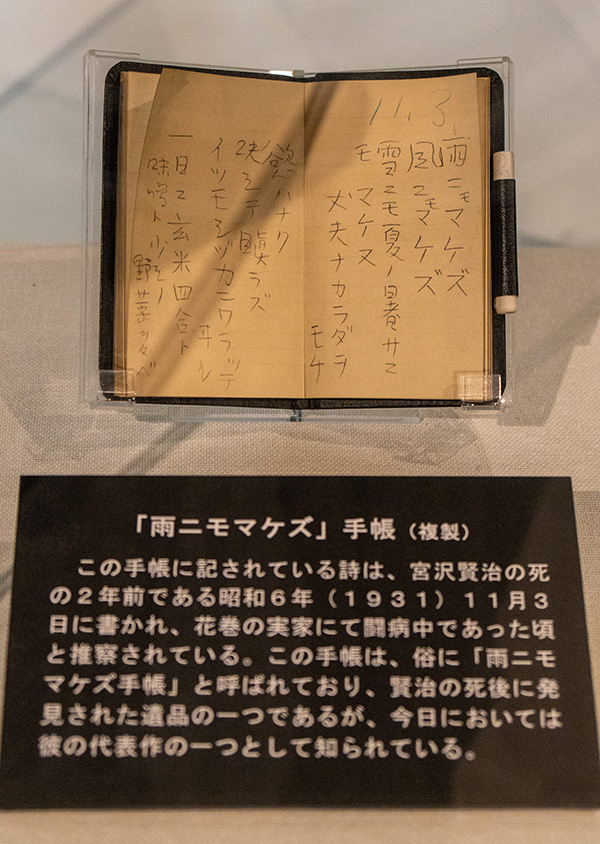 11. 3.
雨ニモマケズ
風ニモマケズ
雪ニモ夏ノ暑サニ
モ マケヌ
丈夫ナカラダヲ
モチ
慾ハナク
決シテ瞋ラズ
イツモシヅカニワラッテ
ヰル
一日ニ玄米四合ト
味噌ト少シノ
野菜ヲタベ
「雨ニモマケズ」手帳（複製）
この手帳に記されている詩は、宮沢賢治の死
の２年前である昭和６年（１９３１）１１月３
日に書かれ、花巻の実家にて闘病中であった頃
と推察されている。この手帳は、俗に「雨ニモ
マケズ手帳」と呼ばれており、賢治の死後に発
見された遺品の一つであるが、今日においては
彼の代表作の一つとして知られている。